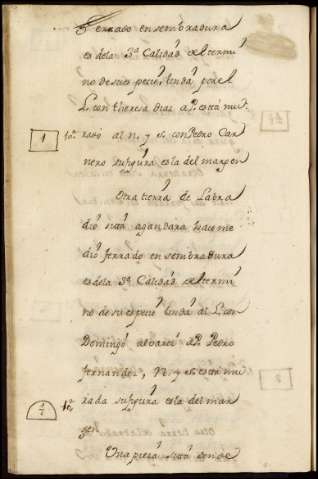 ferrado en sembradura
es dela 3ª Calidad del termi
no de su especie, linda por el
L. con theresa Dias al P. esta mu
1
rado al n. y es. con Pedro Car
nero su figura es la del margen
Otra tierra de Labra
dio sita agandara hace me
dio ferrado en sembradura
es dela 3ª Calidad del termi
no de su especie linda al L. con
Domingo alvarez al P. Pedro
fernandez, N. y es. esta mu
1/2
rada su figura es la del mar
gen
Una pieza sita donde